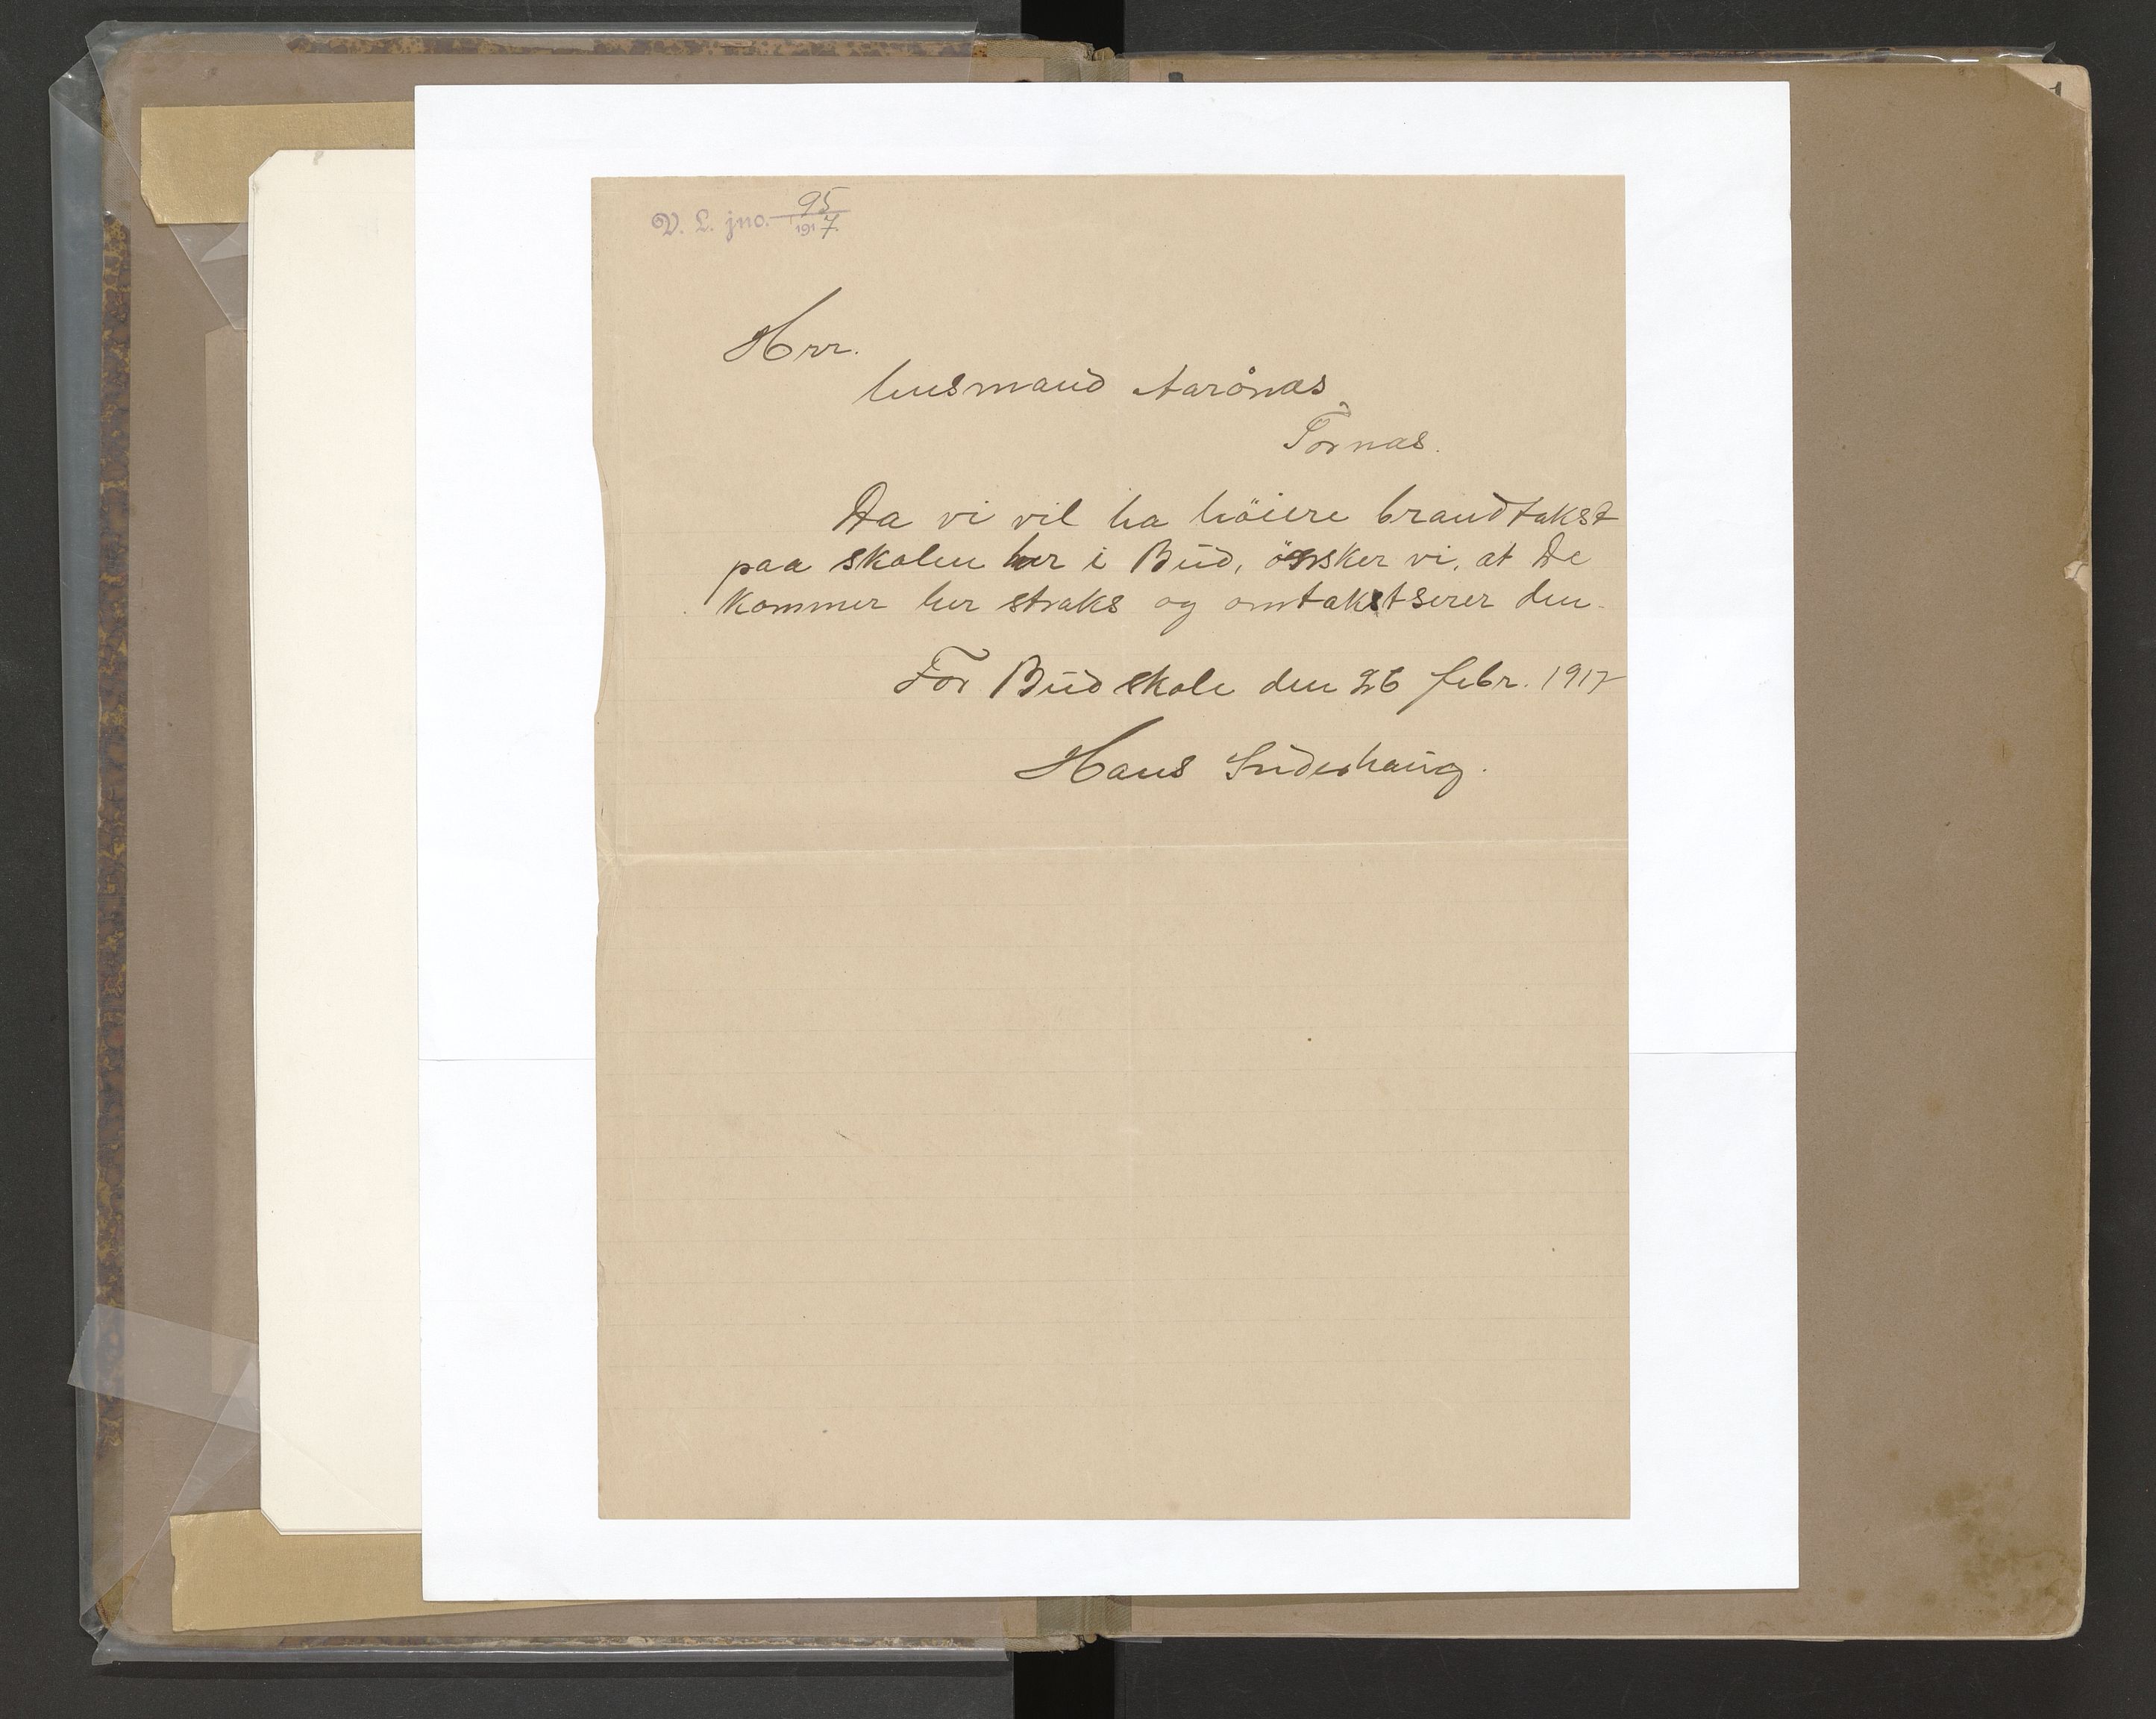 V. L. jno. 95/1917.
Hrr.
lensmand Aarönæs
Tornæs.
Da vi vil ha höiere brandtakst
paa skolen her i Bud, önsker vi, at De
kommer her straks og omtakstserer den.
For Bud skole den 26 febr. 1917
Hans
1